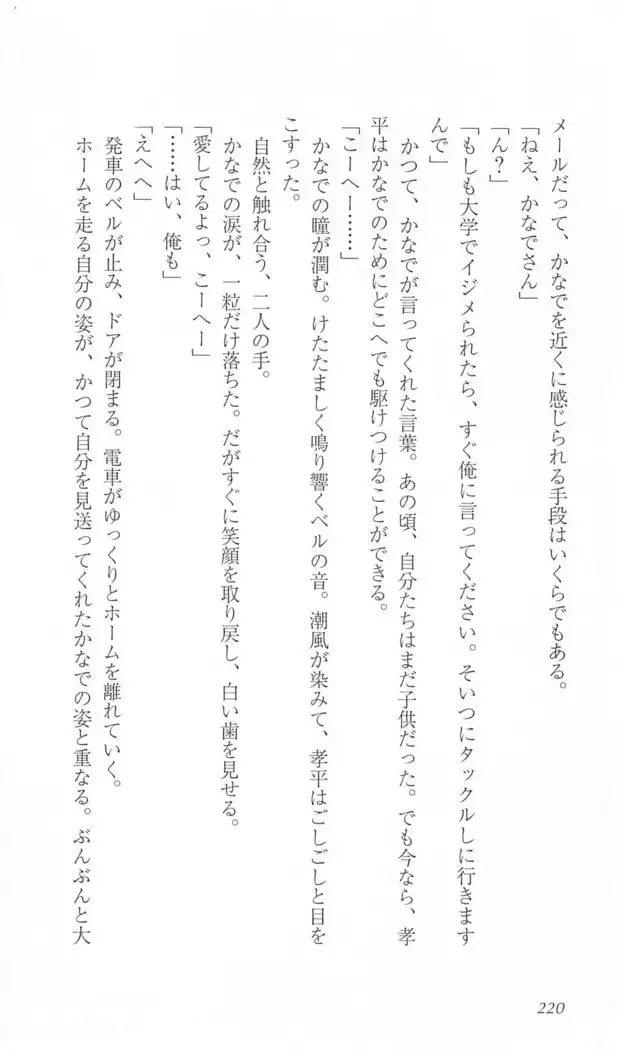 メールだって、かなでを近くに感じられる手段はいくらでもある。
「ねえ、かなでさん」
「ん?」
「もしも大学でイジメられたら、すぐ俺に言ってください。そいつにタックルしに行きます
んで」
かつて、かなでが言ってくれた言葉。あの頃、自分たちはまだ子供だった。でも今なら、孝
平はかなでのためにどこへでも駆けつけることができる。
「こーへー……」
かなでの瞳が潤む。けたたましく鳴り響くベルの音。潮風が染みて、孝平はごしごしと目を
こすった。
自然と触れ合う、二人の手。
かなでの涙が、一粒だけ落ちた。だがすぐに笑顔を取り戻し、白い歯を見せる。
「愛してるよっ、こーへー」
「……はい、俺も」
「えへへ」
発車のベルが止み、ドアが閉まる。電車がゆっくりとホームを離れていく。
ホームを走る自分の姿が、かつて自分を見送ってくれたかなでの姿と重なる。ぶんぶんと大
220